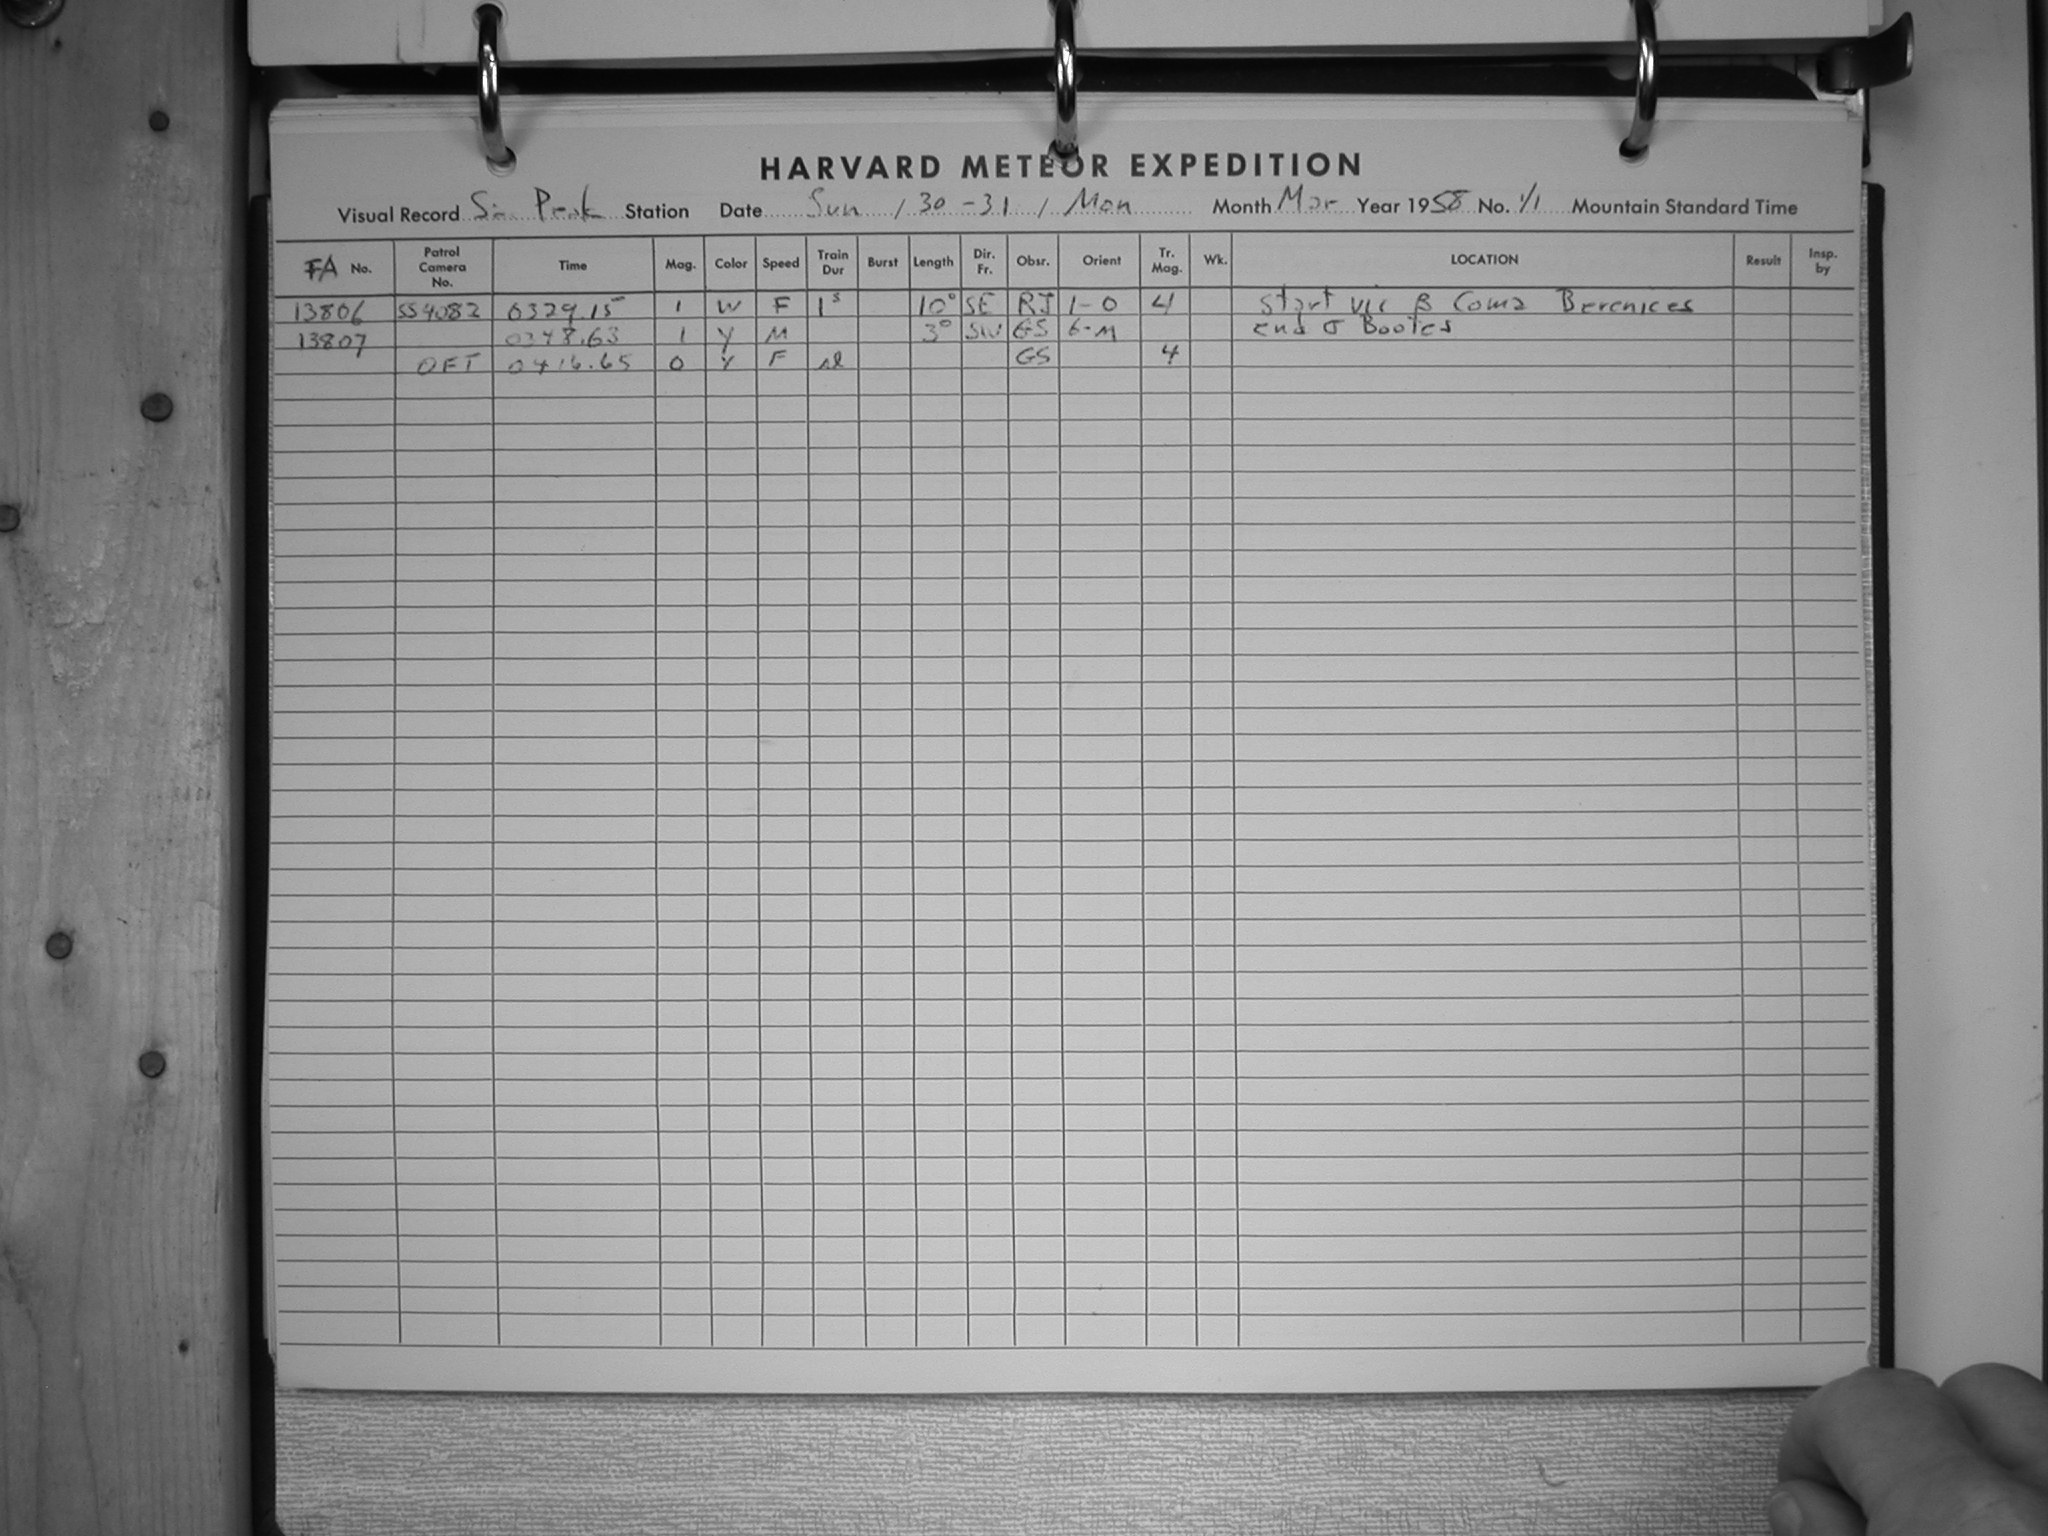 HARVARD METEOR EXPEDITION
Visual Record Peak Station Date Sun / 30 - 31 / Mon Month Mar Year 1958 No. 1/1 Mountain Standard Time
FA No. Patrol Camera No. Time Mag. Color Speed Train Dur Burst Length Dir. Fr. Obsr. Orient Tr. Mag. Wk. LOCATION Result Insp. by
13806 SS4082 0329.15 1 W F 1s 10° SE RJ 1-0 4 Start vic β Coma Berenices
13807 0348.63 1 Y M 3° SW GS 6-M end σ Bootes
OFT 0416.65 0 Y F sl GS 4